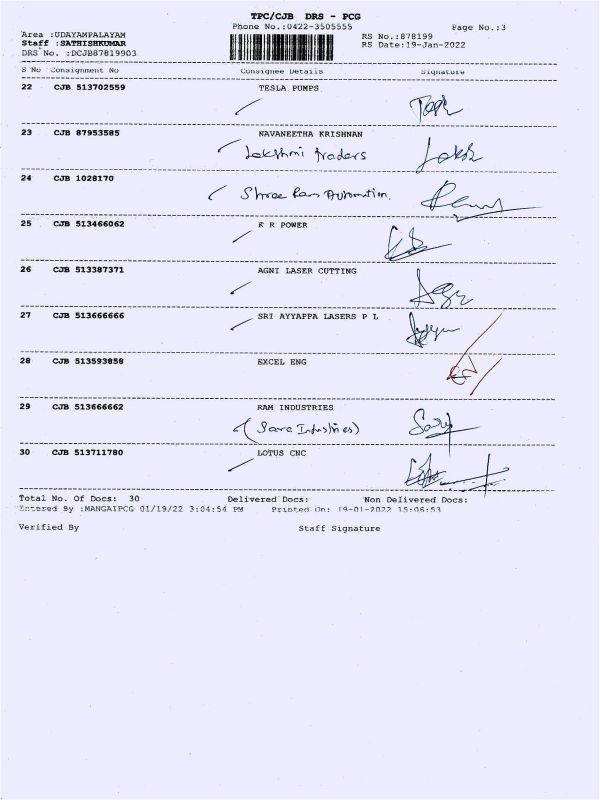 TPC/CJB DRS - PCG
Phone No.:0422-3505555 Page No.:3
Area :UDAYAMPALAYAM RS No.:878199
Staff :SATHISHKUMAR RS Date:19-Jan-2022
DRS No. :DCJB87819903
S No Consignment No Consignee Details Signature
22 CJB 513702559 TESLA PUMPS
23 CJB 87953585 NAVANEETHA KRISHNAN
Lakshmi traders
24 CJB 1028170
Shree Ram Automation.
25 CJB 513466062 K R POWER
26 CJB 513387371 AGNI LASER CUTTING
27 CJB 513666666 SRI AYYAPPA LASERS P L
28 CJB 513593858 EXCEL ENG
29 CJB 513666662 RAM INDUSTRIES
(Sara Industries)
30 CJB 513711780 LOTUS CNC
Total No. Of Docs: 30 Delivered Docs: Non Delivered Docs:
Entered By :MANGAIPCG 01/19/22 3:04:54 PM Printed On: 19-01-2022 15:06:53
Verified By Staff Signature